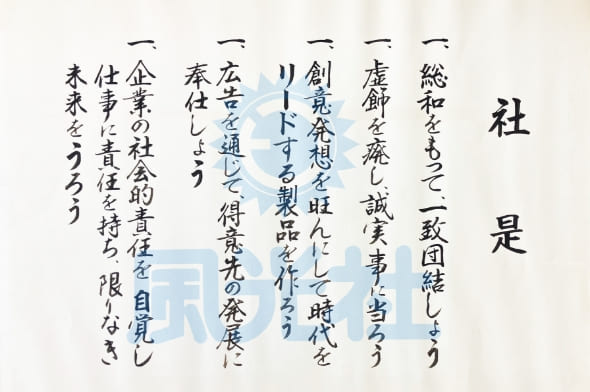 社是
一、総和をもって、一致団結しよう
一、虚飾を廃し、誠実事に当ろう
一、創意発想を旺んにして時代を
リードする製品を作ろう
一、広告を通じて、得意先の発展に
奉仕しよう
一、企業の社会的責任を自覚し
仕事に責任を持ち、限りなき
未来をうろう
風光社